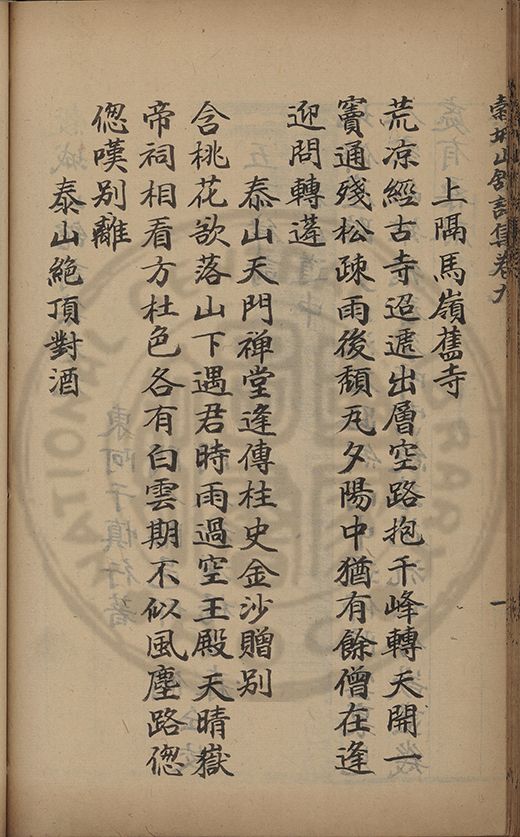 上隔馬嶺舊寺
荒凉經古寺迢遞出層空路抱千峰轉天開一
竇通殘松疎雨後頽瓦夕陽中猶有餘僧在逢
迎問轉蓬
泰山天門禅堂逢傳柱史金沙贈別
含桃花欲落山下遇君時雨過空王殿天晴嶽
帝祠相看方杜色各有白雲期不似風塵路偬
偬嘆別離
泰山絶頂對酒
山舘詩集卷九
一